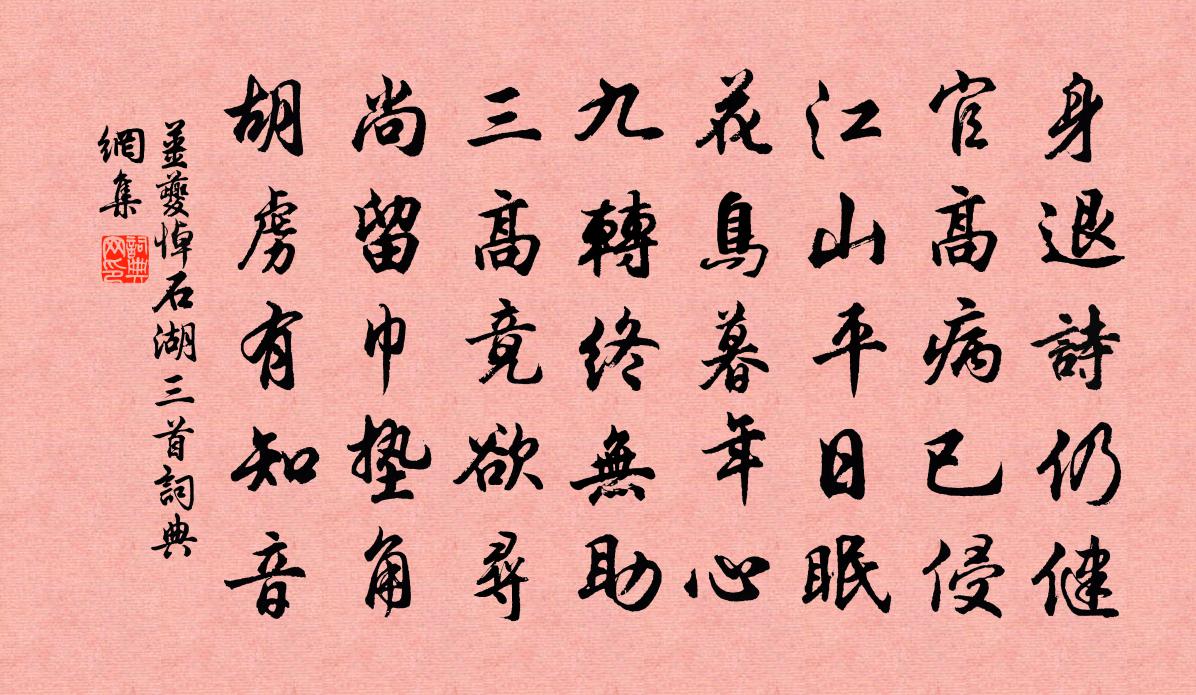 身退詩仍健
官高病已侵
江山平日眠
花鳥暮年心
九轉終無助
三高竟欲尋
尚留巾墊角
胡虜有知音
姜夔悼石湖三首詞典
網集
詞典網印